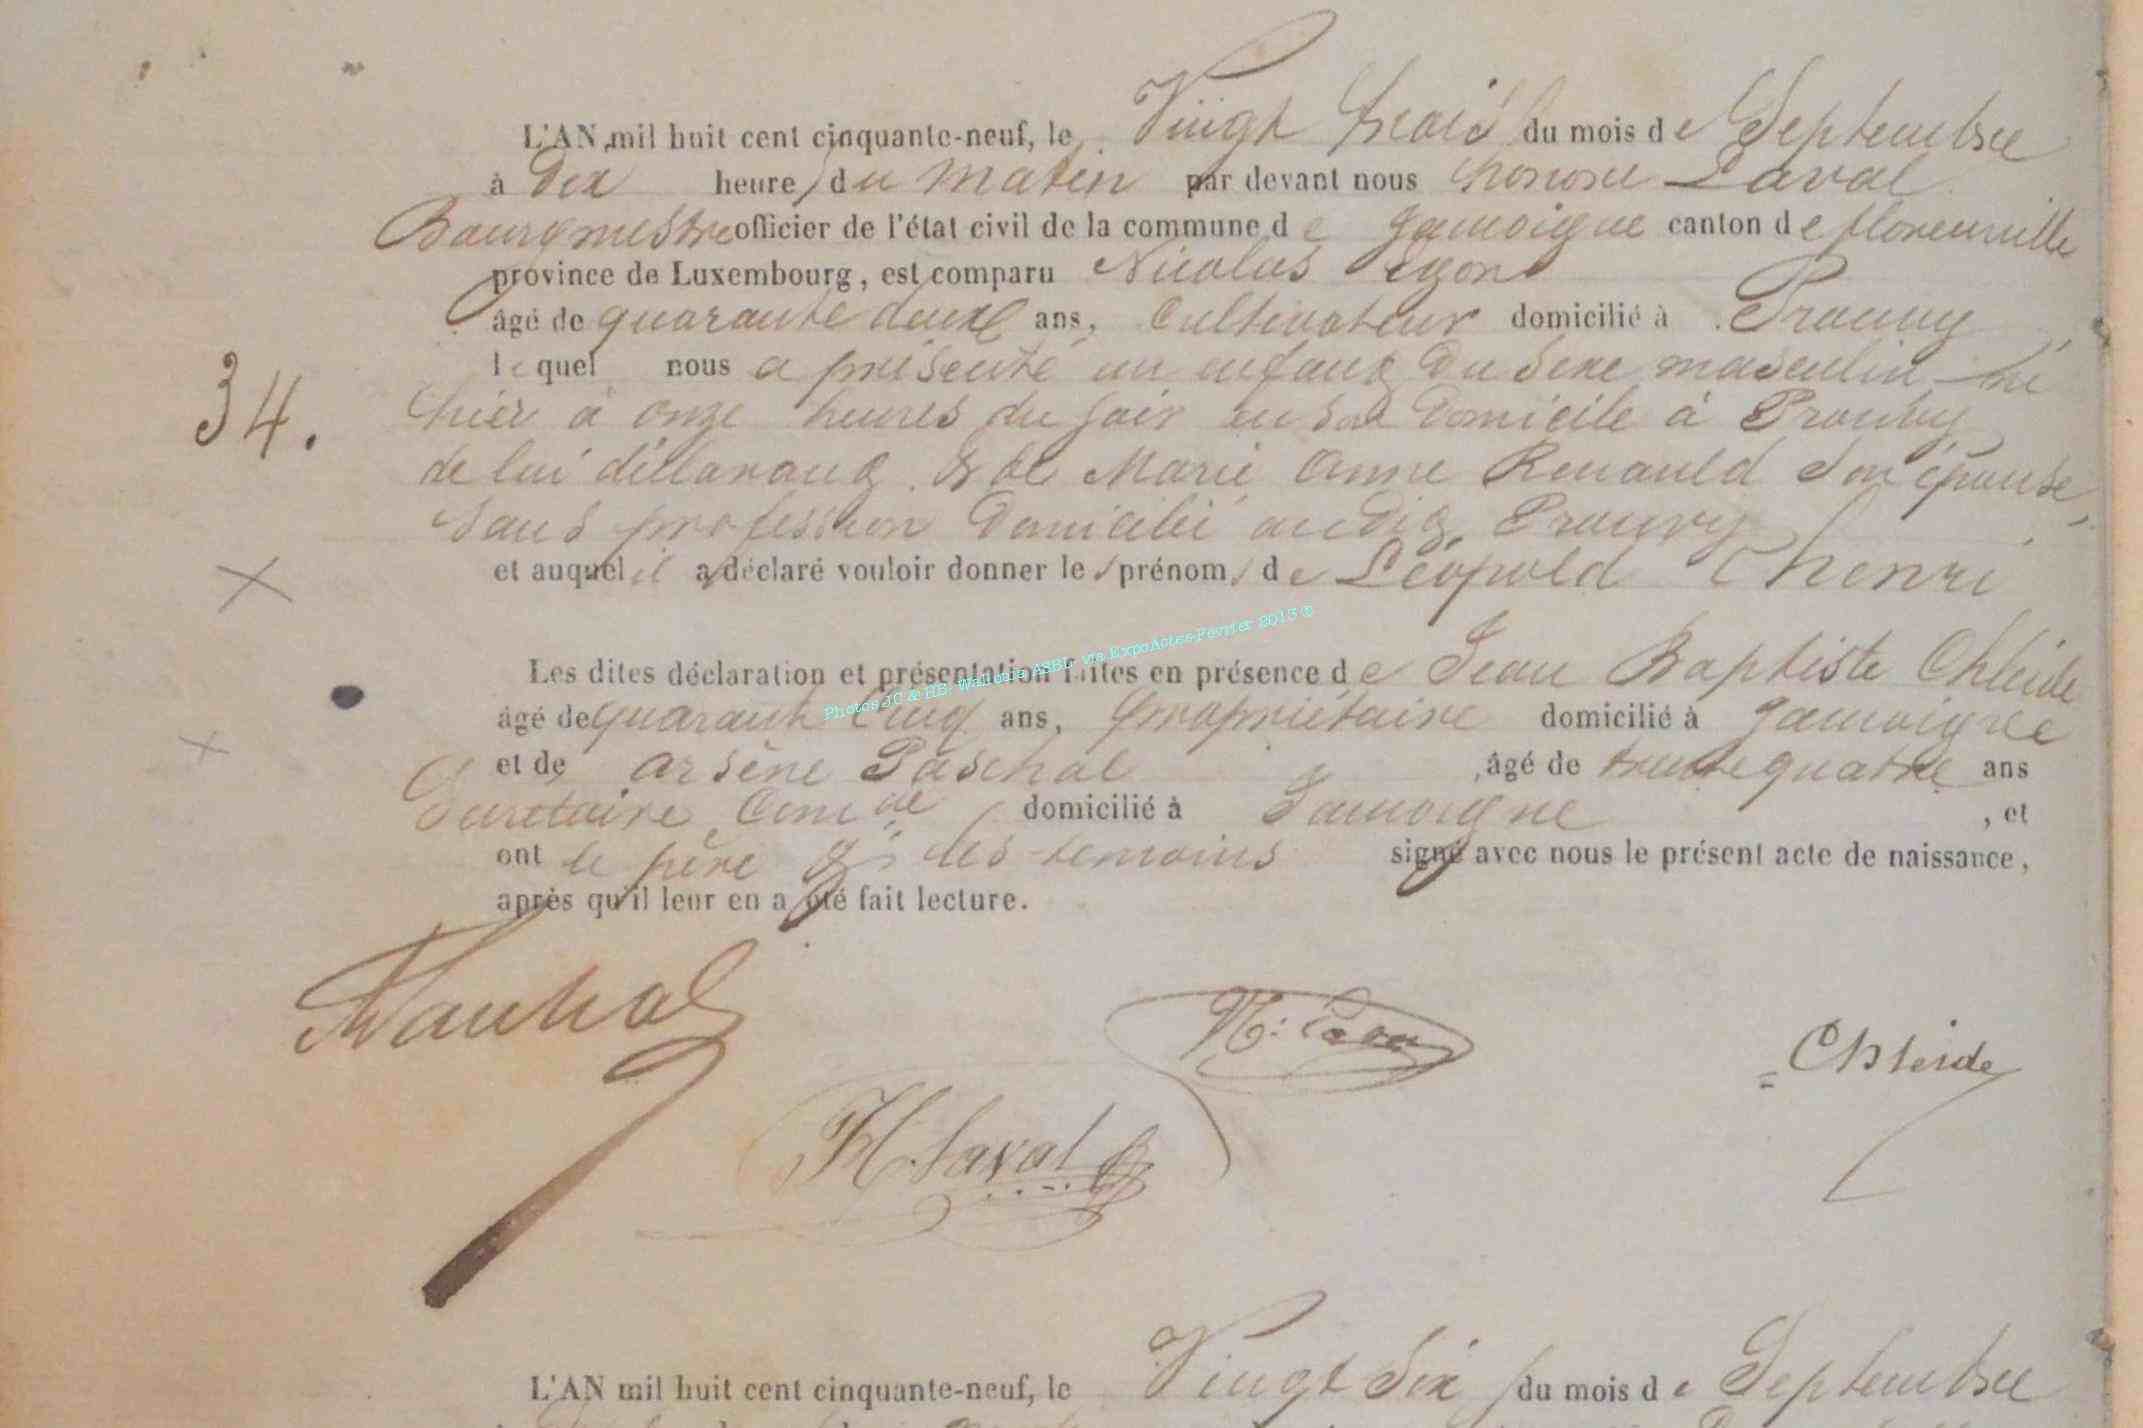 L'AN mil huit cent cinquante-neuf, le Vingt trois du mois de Septembre
à Dix heures du matin par devant nous honoré Laval
Bourgmestre officier de l'état civil de la commune de Jamoigne canton de florenville
province de Luxembourg, est comparu Nicolas
âgé de quarante deux ans, Cultivateur domicilié à Prouvy
lequel nous a présenté un enfant du sexe masculin né
34. hier à onze heures du soir en son Domicile à Prouvy
de lui déclarant & de Marie Anne Renauld son épouse,
sans profession Domicilié audit Prouvy
et auquel il a déclaré vouloir donner les prénoms de Léopold henri
Les dites déclaration et présentation faites en présence de Jean Baptiste Chleide
Photos JC & HB: Wallonia ASBL via ExpoActes-Février 2013 ©
âgé de quarante Cinq ans, propriétaire domicilié à Jamoigne
et de arsène Paschal, âgé de trente quatre ans
Secretaire Com al domicilié à Jamoigne, et
ont le père & les temoins signé avec nous le présent acte de naissance,
après qu'il leur en a été fait lecture.
Chleide
H Laval
L'AN mil huit cent cinquante-neuf, le Vingt Six du mois de Septembre